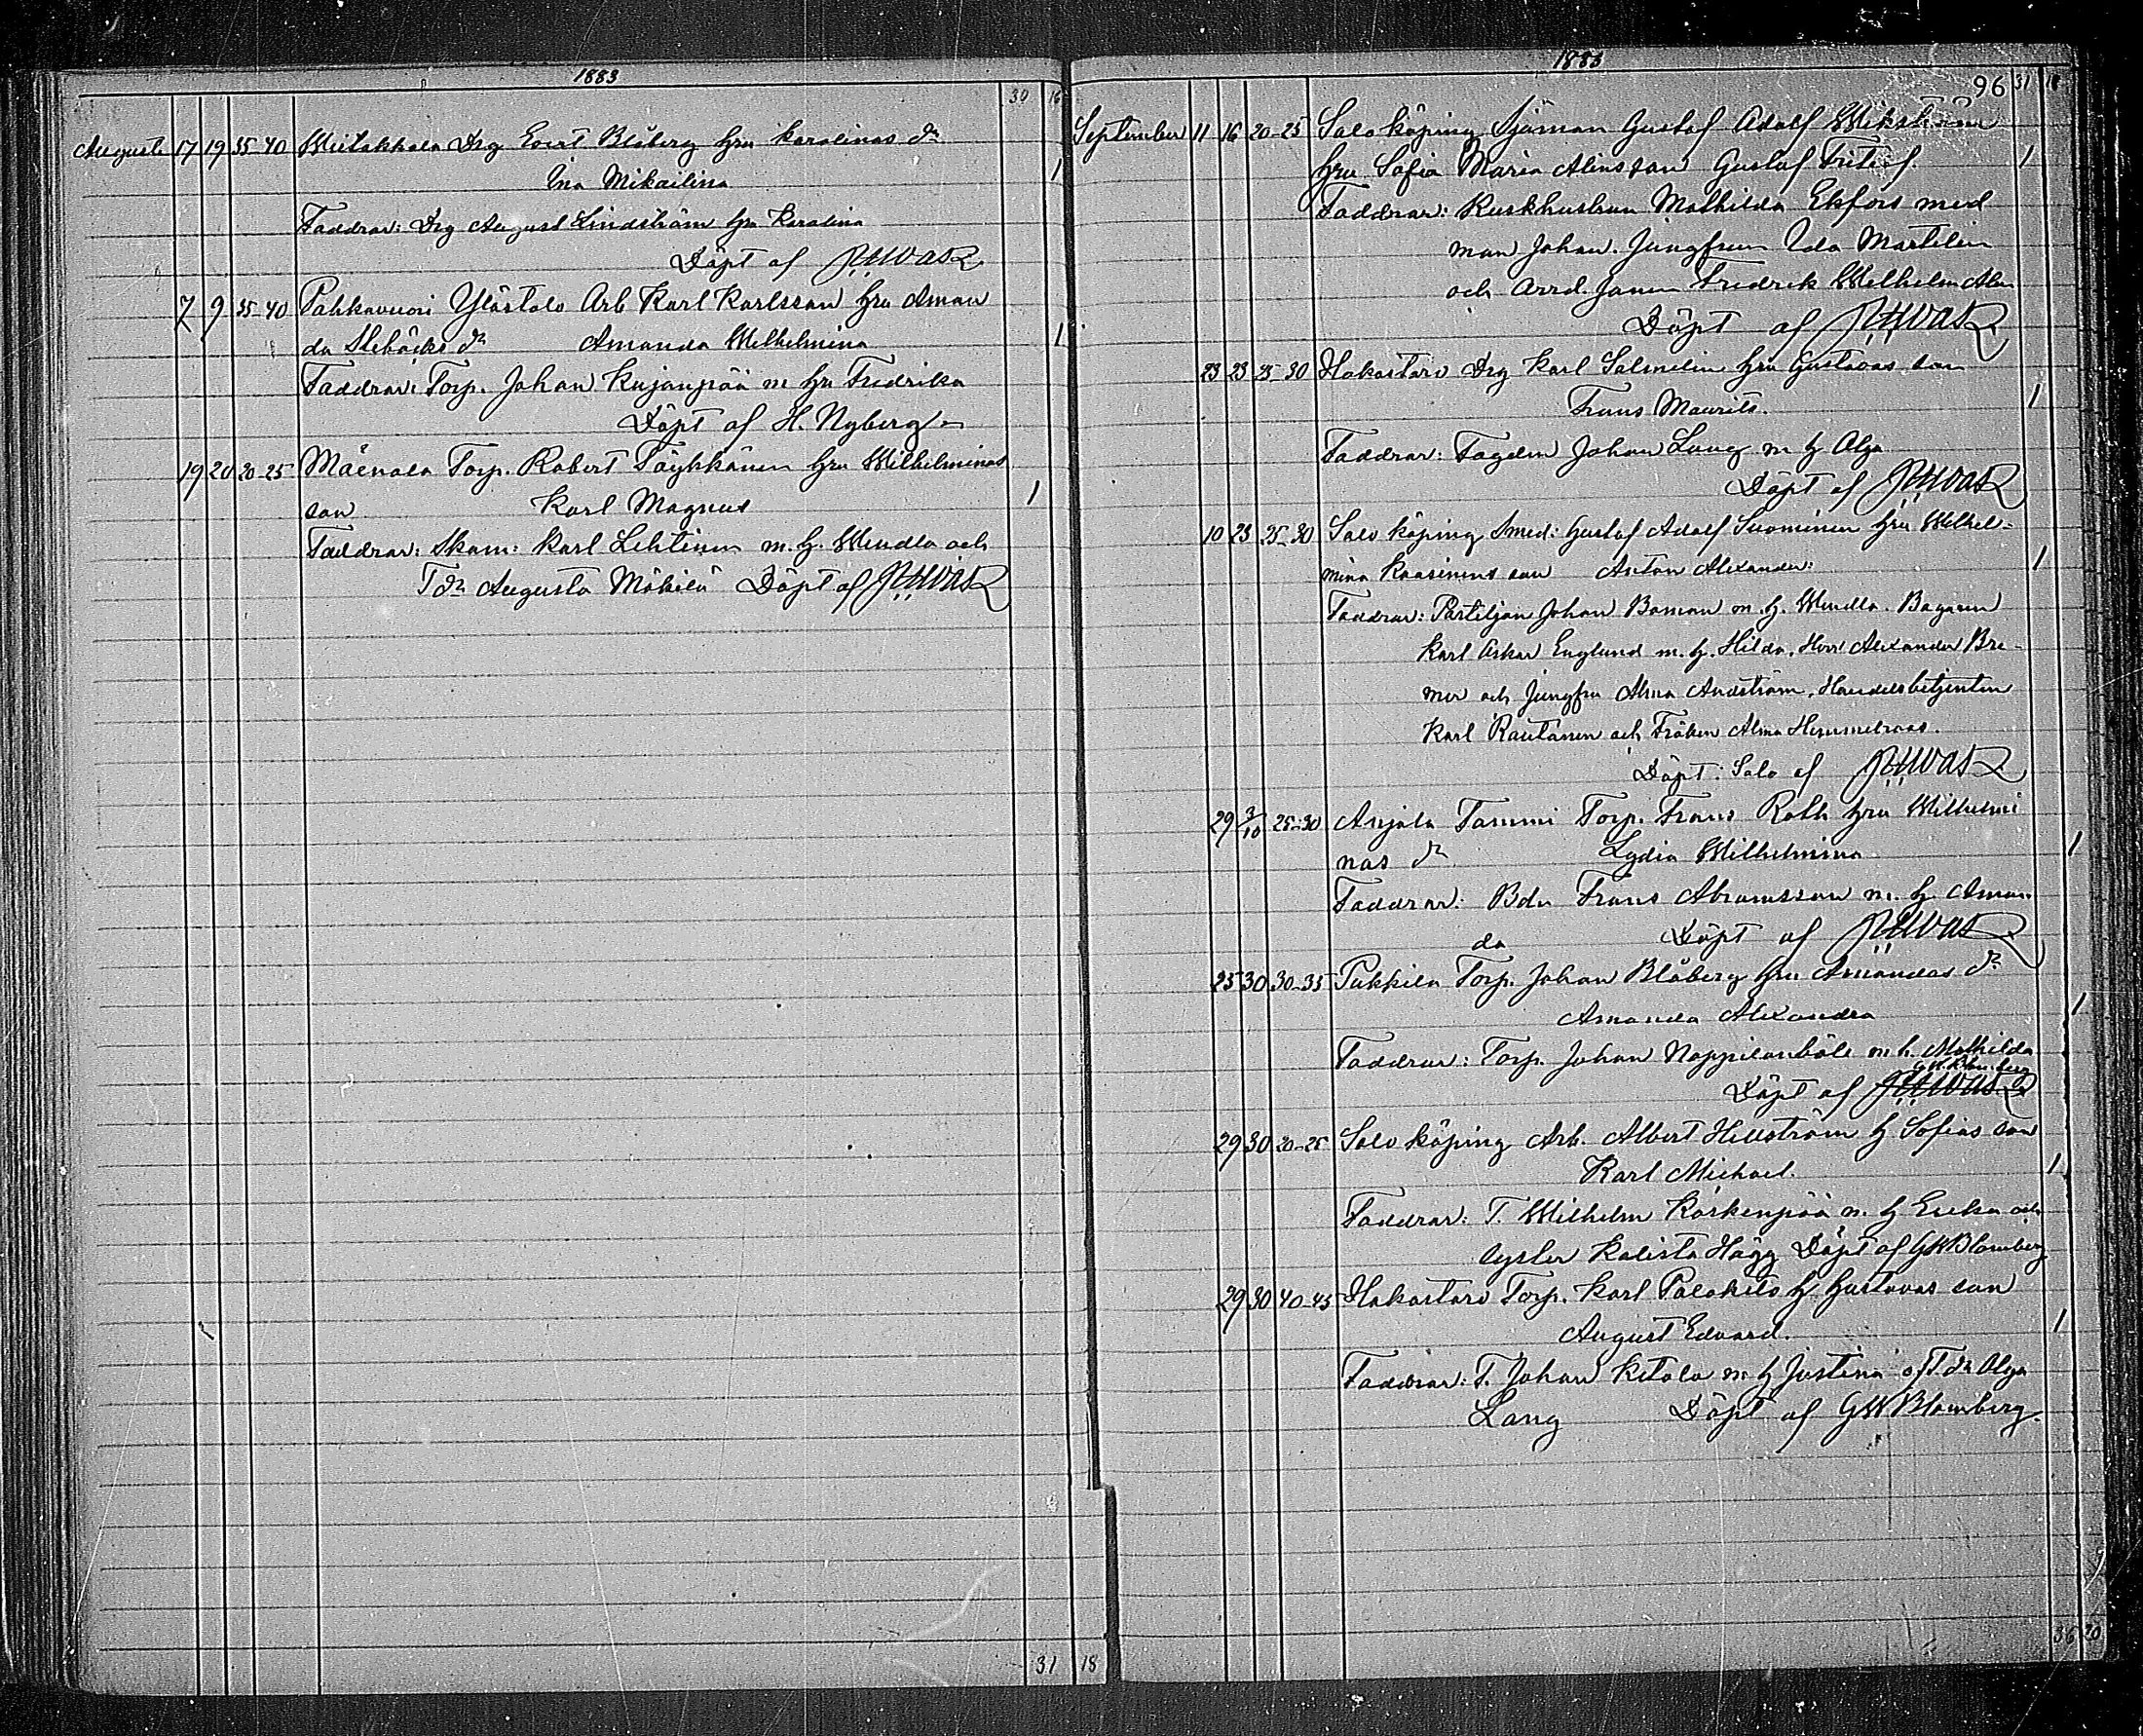 1883
30 16
August 17 19 35-40 Wiitakkala Drg Evert Blåberg hru Karolinas dr
Ina Mikailina 1
Faddrar: Drg August Lindström hru Karolina
Döpt af
7 9 35-40 Pahkavuori Ylästalo Arb Karl Karlsson hru Aman
da dr Amanda Wilhelmina 1
Faddrar: Torp. Johan Kujanpää m hu Fredrika
Döpt af H. Nyberg
19 20 20-25 Torp. Robert hru Wilhelminas
son Karl Magnus 1
Faddrar: Skom: Karl Lehtinen m. h. Wendla och
T dr Augusta Mäkilä Döpt af
31 18
1883
96 31 18
September 11 16 20-25 Salo köping Sjöman Gustaf Adolf Wikström
hru Sofia Maria son Gustaf Fritiof. 1
Faddrar: Kuskhustrun Mathilda Ekfors med
man Johan. Jungfrun Ida Martelin
och Fredrik Wilhelm
Döpt af
23 23 25-30 Hakastaro Drg Karl Salmelin hru Gustavas son
Frans Maurits. 1
Faddrar: Johan Lang m h Olga
Döpt af
10 23 25-30 Salo köping Smed: Gustaf Adolf Suominen hru Wilhel-
mina son Anton Alexander: 1
Faddrar: Johan Boman m. h. Wendla. Bagaren
Karl Oskar Englund m. h. Hilda. Herr Alexander Bre-
mer och Jungfru Alma Andström, Handelsbetjenten
Karl Rautanen och Fröken Alma
Döpt i Salo af
29 3/10 25-30 Anjala Tammi Torp. Frans Roth hru Wilhelmi
nas dr Lydia Wilhelmina 1
Faddrar: Bdn Frans Abramsson m. h. Aman
da Döpt af
25 30 30-35 Pukkila Torp. Johan Blåberg hru Amandas dr
Amanda Alexandra 1
Faddrar: Torp. Johan m. h. Mathilda
GW Blomberg
Döpt af
29 30 20-25 Salo köping Arb. Albert Hellström h Sofias son
Karl Michael. 1
Faddrar: T. Wilhelm Kaskenpää m. h Ericka och
Kalista Hägg Döpt af GW Blomberg
29 30 40-45 Hakastaro Torp. Karl h Gustavas son
August Edvard. 1
Faddrar: T. Johan Ketala m. h Justina o T. dr Olga
Lang Döpt af GW Blomberg.
36 20